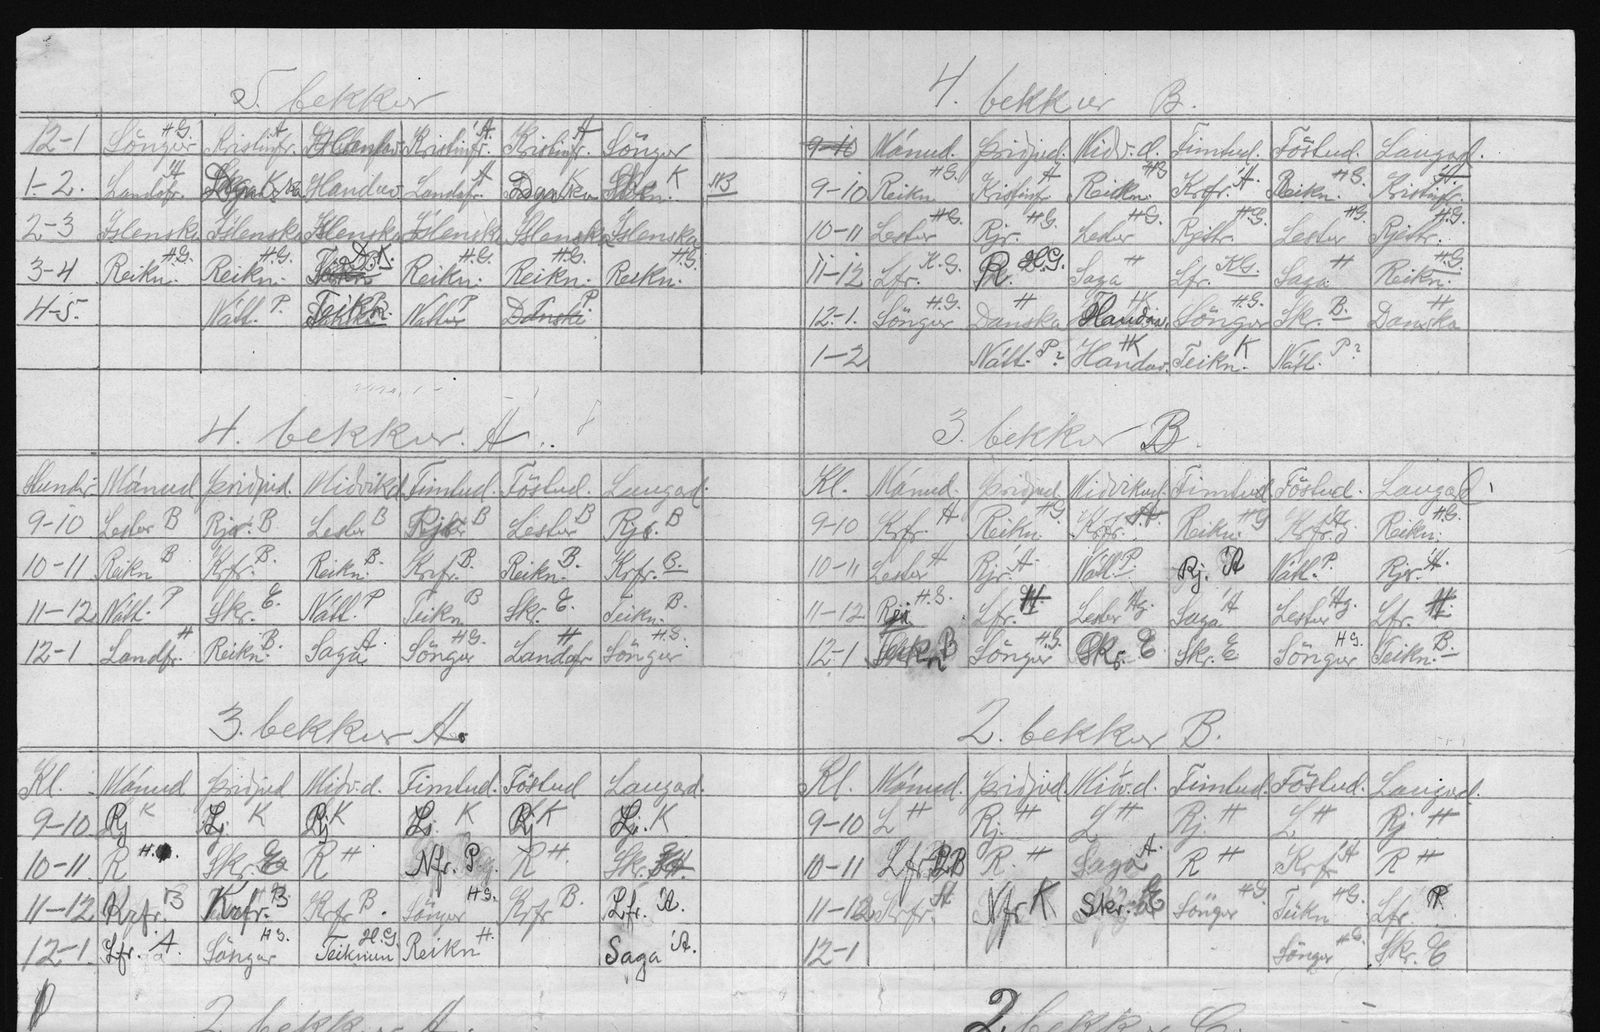 5. bekkur
12-1 Söngur H.G. Kristinfr. A Handav. Kristinfr. A. Kristinfr. A Söngur
1-2. Landafr. A Handav. Landafr. A K K HB
2-3 Íslenska Íslenska Íslenska Íslenska Íslenska Íslenska
3-4 Reikn. H.G. Reikn. H.G. D.K. Reikn. H.G. Reikn. H.G. Reikn. H.G.
4-5. Nátt. P. Teikn. Nattur P Danski P
4. bekkur A.
Mánud Þriðjud. Miðvikud Fimtud. Föstud. Laugad.
9-10 Lestur B Rjr. B Lestur B Rjr. B Lestur B Rjr. B
10-11 Reikn B Krfr. B. Reikn. B. Krfr. B. Reikn. B. Krfr. B.
11-12 Nátt. P Skr. E. Nátt. P Teikn B Skr. E. Teikn. B.
12-1 Landfr. H Reikn. B. Saga A Söngur H.G. Landafr H Söngur H.G.
3. bekkur A.
Kl. Mánud Þriðjud Miðv.d. Fimtud. Föstud Laugad.
9-10 Rj K Lj. K Rj K Lj. K Rj K Lj. K
10-11 R H. Skr. R H Nfr. P. R H. Skr.
11-12 Krfr. B Krfr. B Krfr B. Söngur H.G. Krfr B. Lfr. A.
12-1. Lfr. A. Söngur H.G. Teiknun H.G. Reikn H. Saga A.
2. bekkur A.
4. bekkur B.
9-10 Mánud. Þriðjud. Miðv.d. Fimtud. Föstud. Laugad.
9-10 Reikn. H.G. Kristinfr. A Reikn. HG Krfr. A. Reikn. H.G. Kristinfr. A.
10-11 Lestur H.G. Rjr. H.G. Lestur H.G. Rjettr. H.G. Lestur H.G. Rjettr. H.G.
11-12 Lfr. K.G. R. H.G. Saga H Lfr. K.G. Saga H Reikn. H.G.
12-1. Söngur H.G. Danska H Handav. HK Söngur H.G. Skr. B. Danska H
1-2 Nátt. P? Handav. HK Teikn. K Nátt. P?
3. bekkur B.
Kl. Mánud. Þriðjud. Miðvikud. Fimtud Föstud. Laugad.
9-10 Krfr. A Reikn. HG Krfr. A. Reikn. HG Krfr. A. Reikn. H.G.
10-11 Lestur H Rjr. A. Nátt. P. Rj. A Nátt. P. Rjr. A.
11-12 H.G. Lfr. H. Lestur Hg. Saga A Lestur Hg. Lfr. H.
12-1 Teikn B Söngur H.G. Skr. E Skr. E Söngur H.G. Teikn. B.
2. bekkur B.
Kl. Mánud. Þriðjud. Miðv.d. Fimtud. Föstud. Laugad.
9-10 L H Rj. H L H Rj. H L H Rj H
10-11 Lfr. B R. H Saga A. R H Krfr A R H
11-12 Krfr. A Nfr. K. Skr. E Söngur H.G. Teikn H.G. Lfr
12-1 Söngur H.G. Skr. E
2. bekkur C.